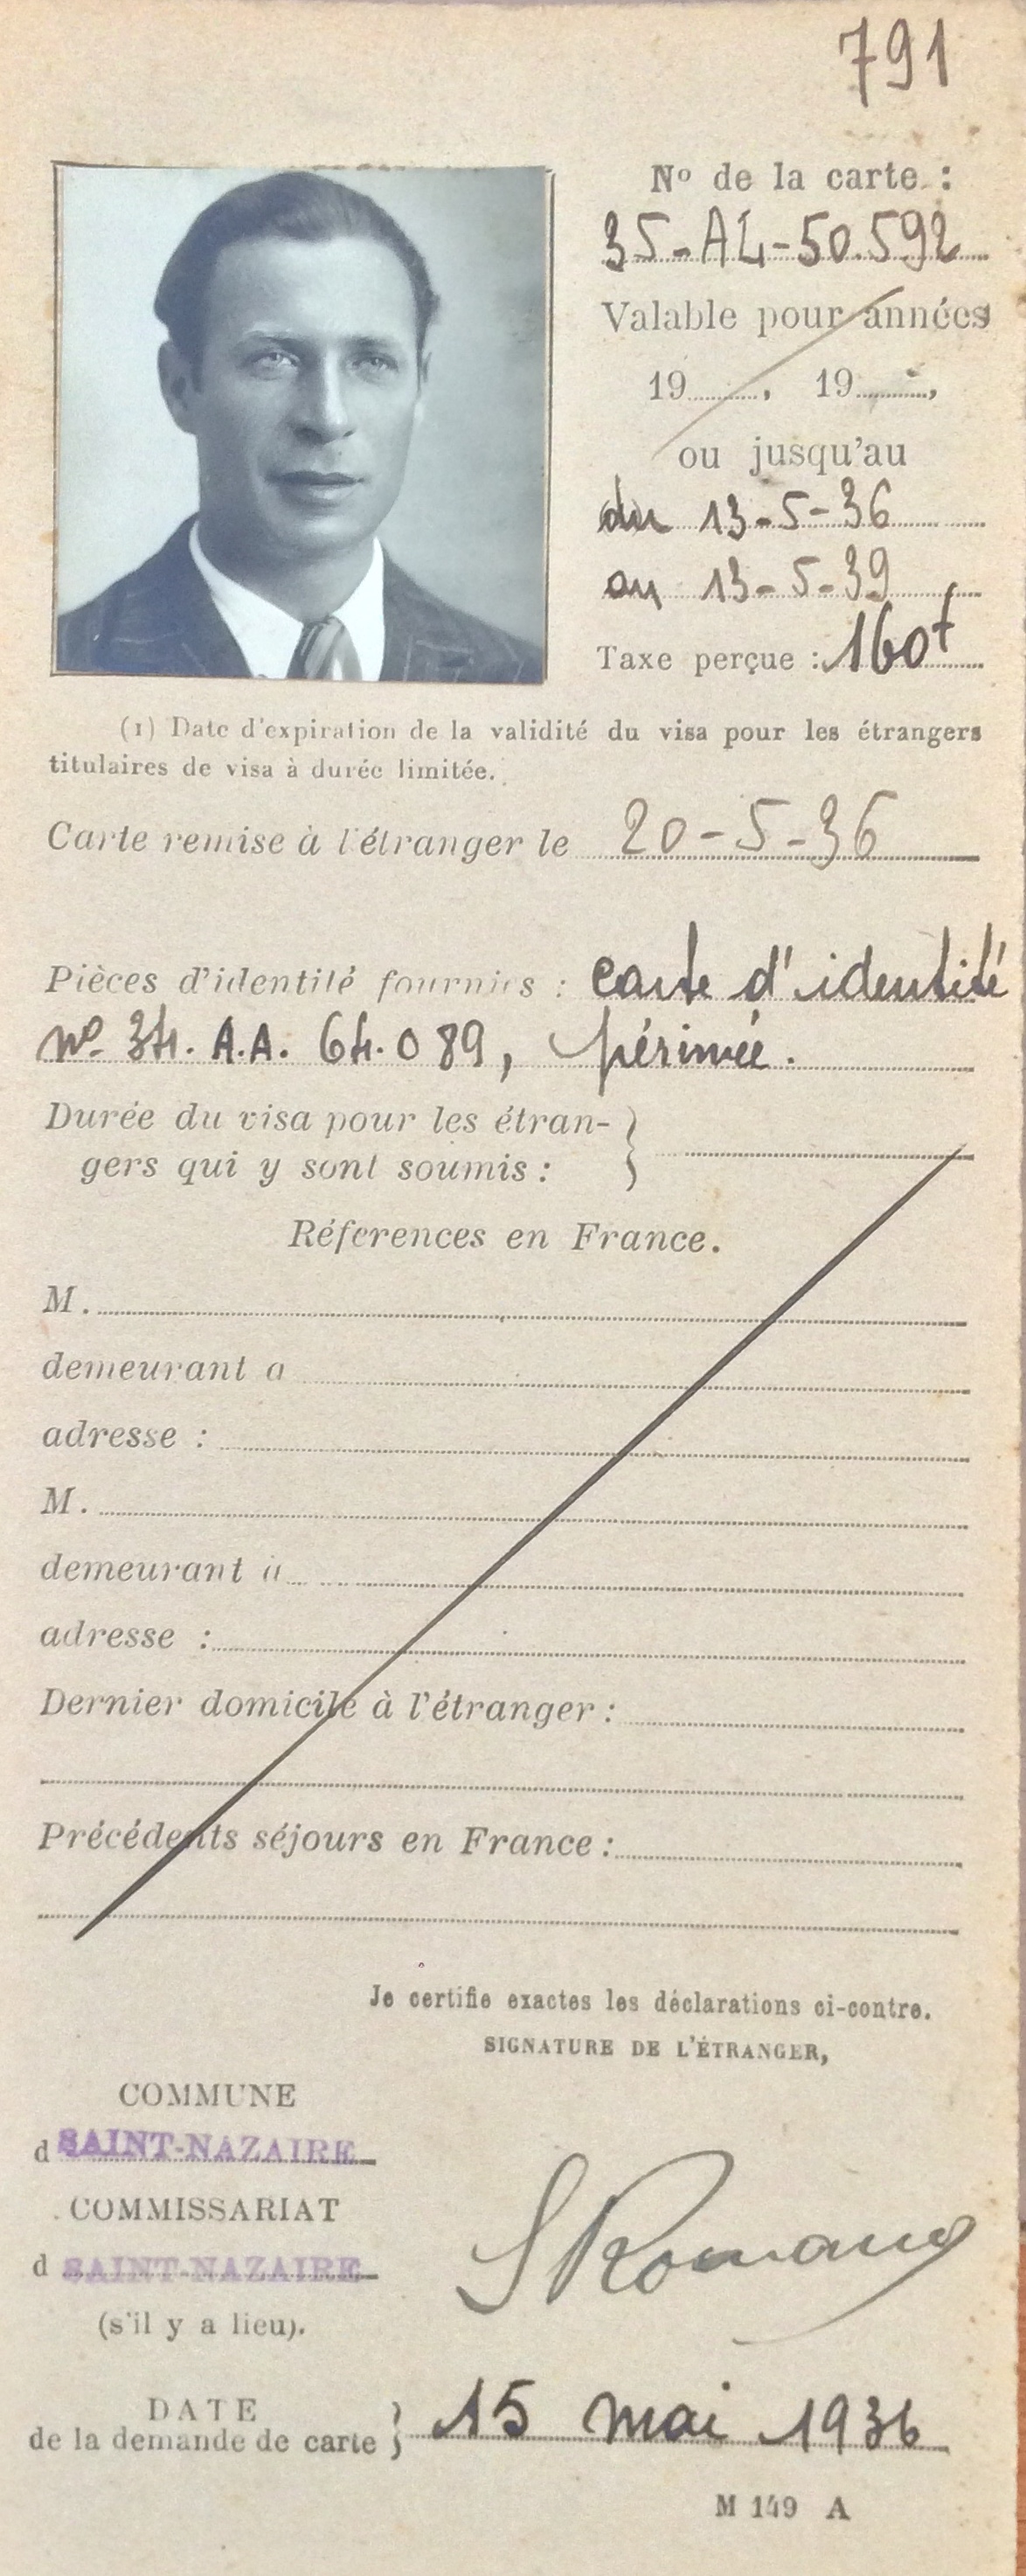 791
Nº de la carte :
35-AL-50.592
Valable pour années
19........, 19........,
ou jusqu'au
du 13-5-36
au 13-5-39
Taxe perçue : 160f
(1) Date d'expiration de la validité du visa pour les étrangers
titulaires de visa à durée limitée.
Carte remise à l'étranger le 20-5-36
Pièces d'identité fournies : carte d'identité
nº 34. A.A. 64.089, périmée.
Durée du visa pour les étran-
gers qui y sont soumis :
Références en France.
M.
demeurant à
adresse :
M.
demeurant à
adresse :
Dernier domicile à l'étranger :
Précédents séjours en France :
Je certifie exactes les déclarations ci-contre.
SIGNATURE DE L'ÉTRANGER,
COMMUNE
d SAINT-NAZAIRE
COMMISSARIAT
d SAINT-NAZAIRE
(s'il y a lieu).
SRomano
DATE
de la demande de carte } 15 mai 1936
M 149 A